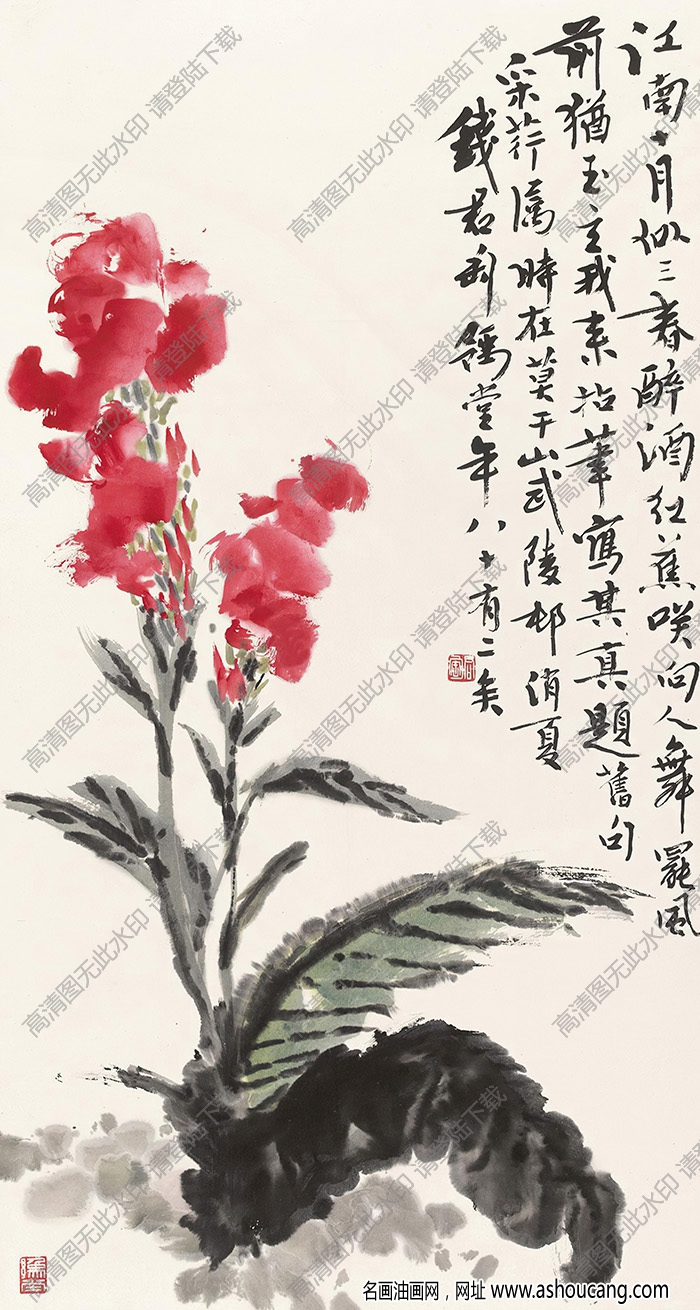 江南十月似三春醉酒红蕉笑向人舞罢风
前犹玉立我来拈笔写其真题舊句
采芹属時在莫干山武陵邨消夏
錢君匋鍚堂年八十有二矣
高清图无此水印 请登陆下载
名画油画网，网址 www.ashoucang.com